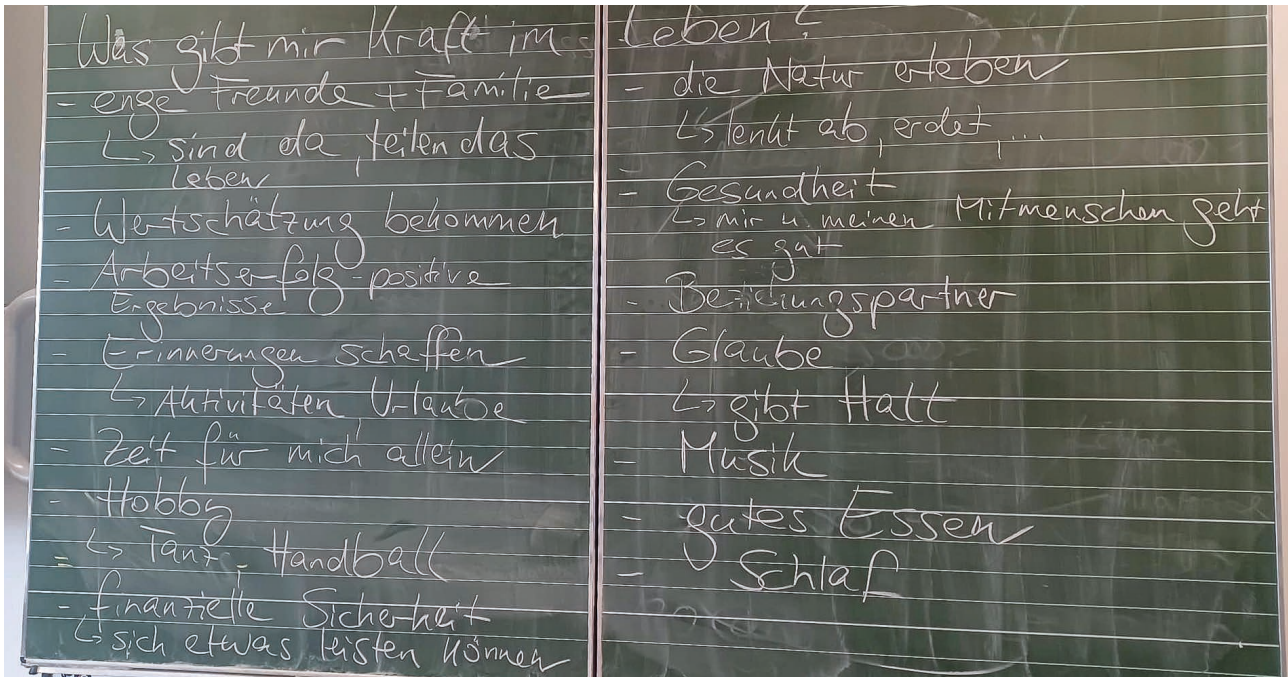 Was gibt mir Kraft im Leben?
- enge Freunde + Familie
↳ sind da, teilen das
Leben
- Wertschätzung bekommen
- Arbeitserfolg - positive
Ergebnisse
- Erinnerungen schaffen
↳ Aktivitäten, Urlaube
- Zeit für mich allein
- Hobby
↳ Tanz, Handball
- finanzielle Sicherheit
↳ sich etwas leisten können
- die Natur erleben
↳ lenkt ab, erdet, ...
- Gesundheit
↳ mir u. meinen Mitmenschen geht
es gut
- Beziehungspartner
- Glaube
↳ gibt Halt
- Musik
- gutes Essen
- Schlaf